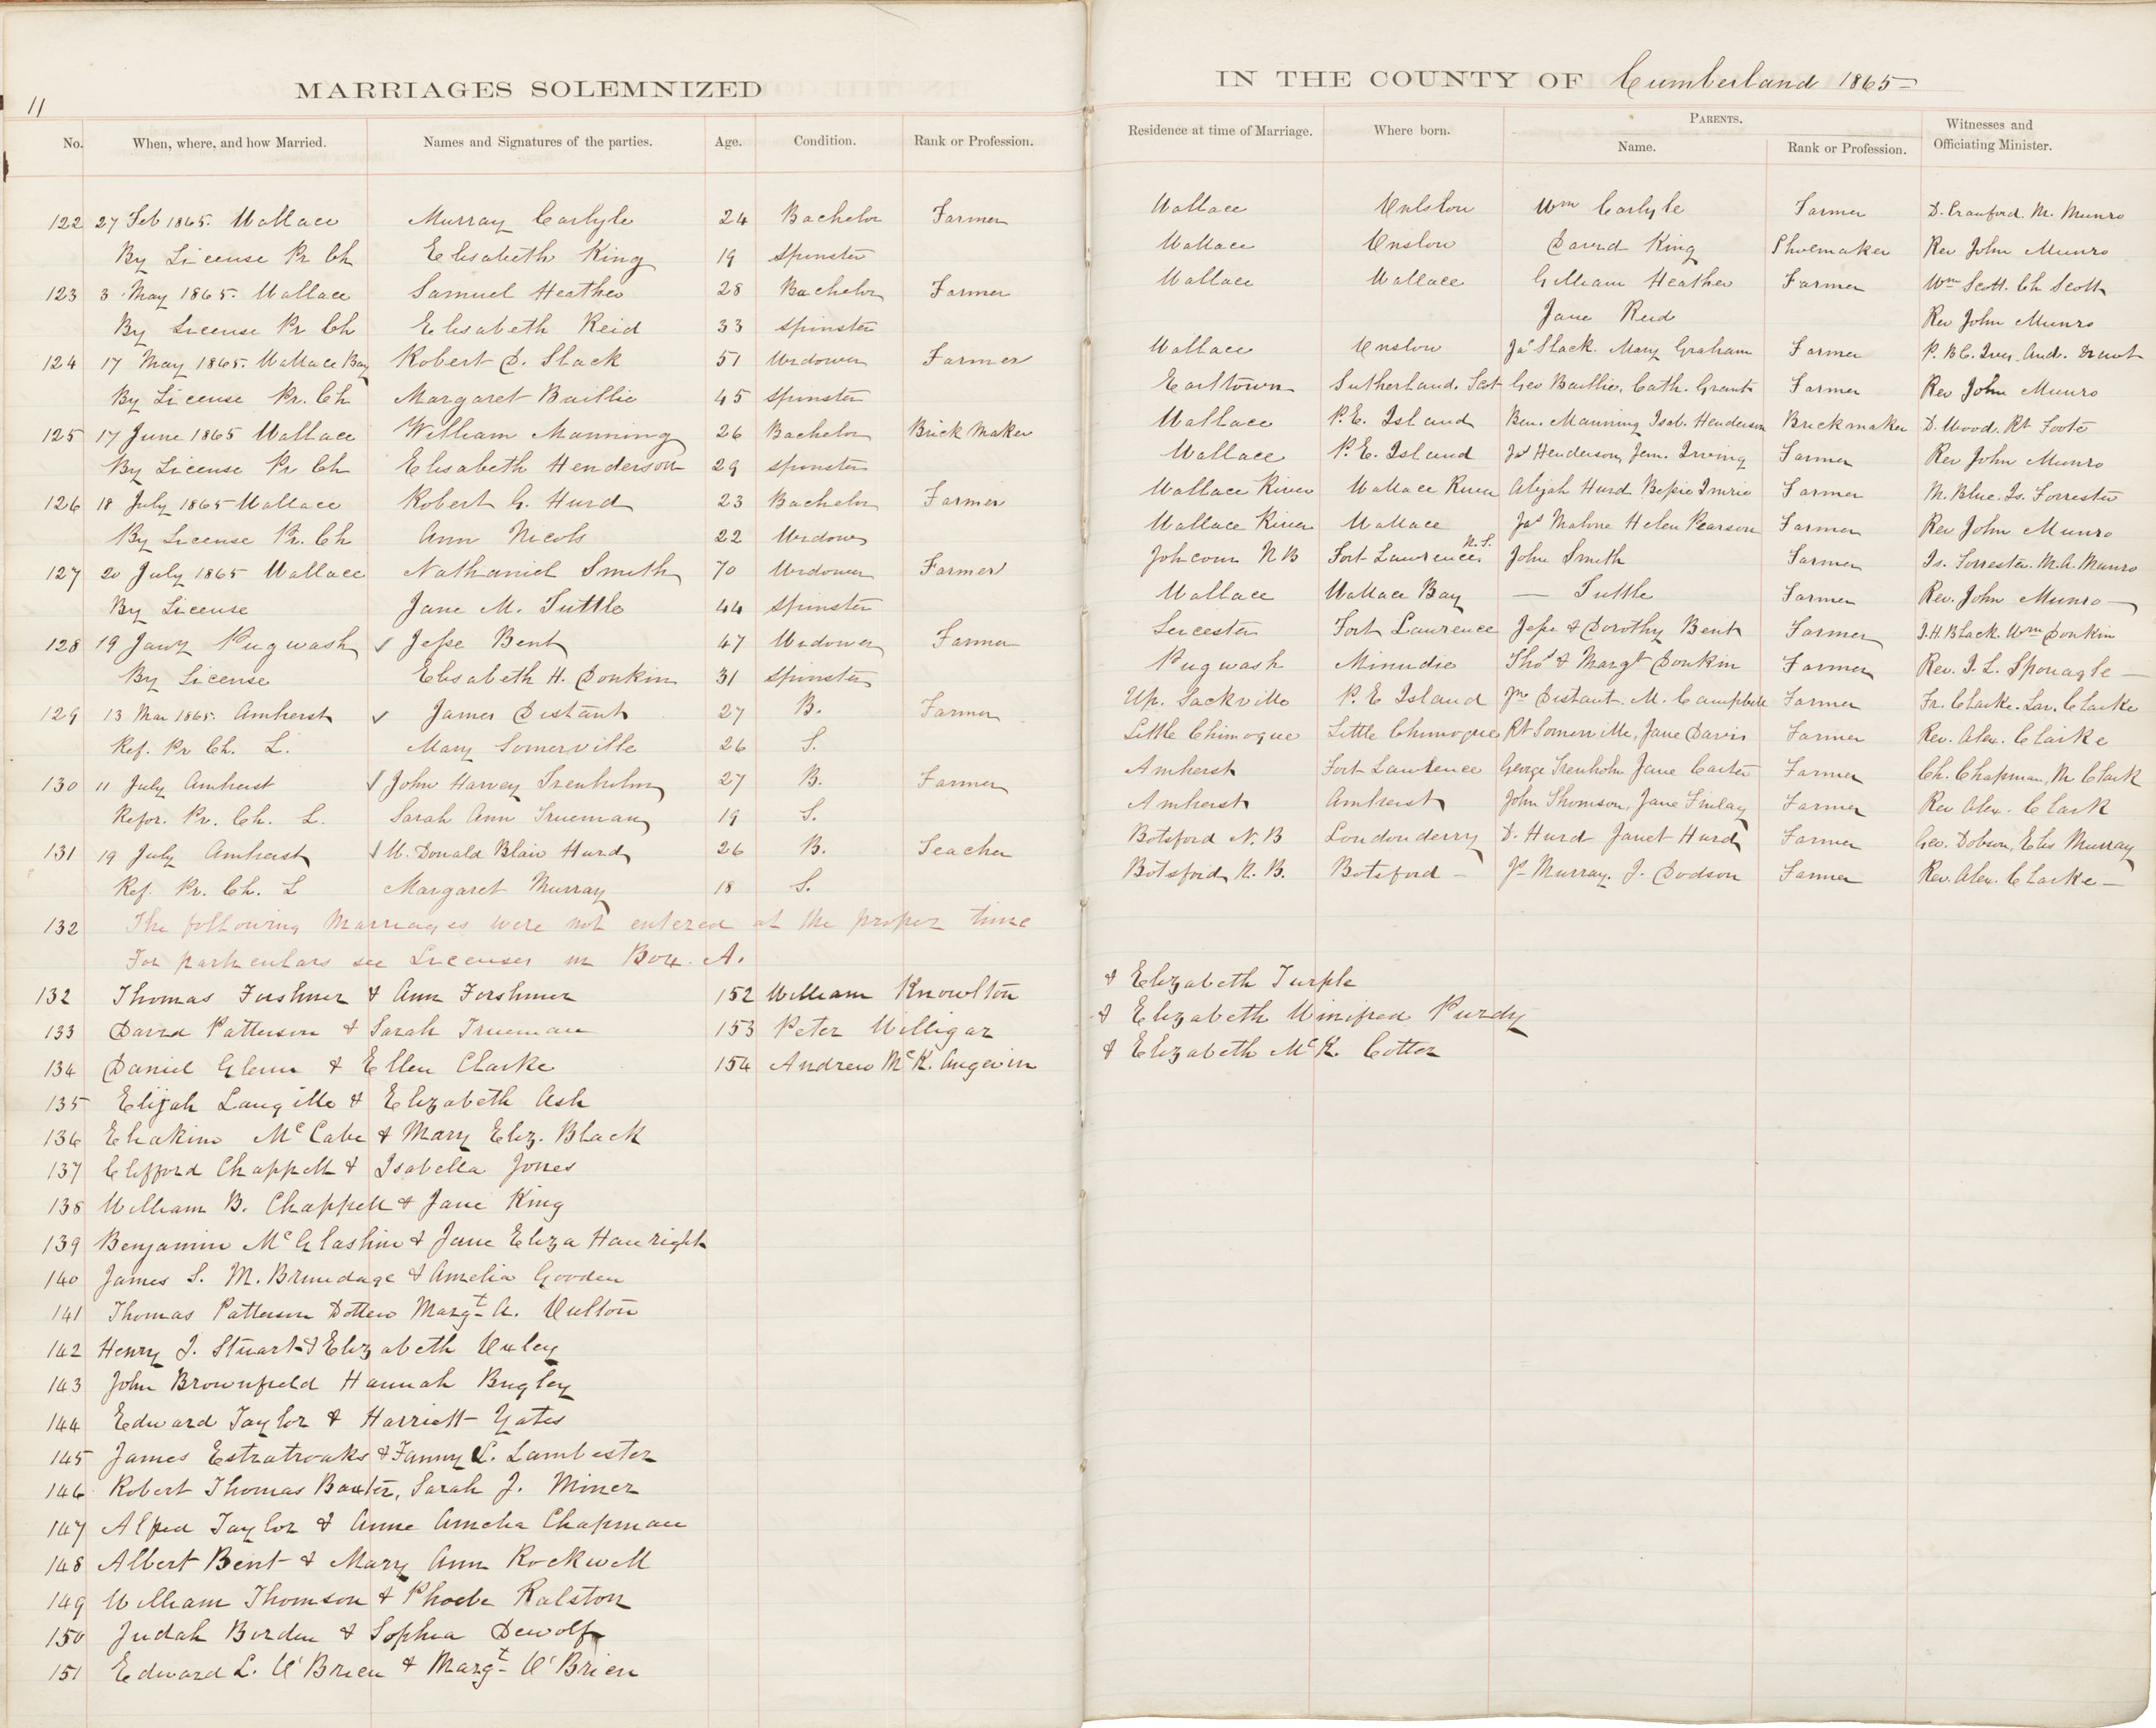 11
MARRIAGES SOLEMNIZED
IN THE COUNTY OF Cumberland 1865
No. When, where, and how Married. Names and Signatures of the parties. Age. Condition. Rank or Profession. Residence at time of Marriage. Where born. PARENTS. Name. Rank or Profession. Witnesses and Officiating Minister.
122 27 Feb 1865. Wallace Murray Carlyle 24 Bachelor Farmer Wallace Onslow Wm Carlyle Farmer D. Crawford. M. Munro
By License Pr Ch Elisabeth King 19 Spinster Wallace Onslow David King Shoemaker Rev John Munro
123 3 May 1865. Wallace Samuel Heather 28 Bachelor Farmer Wallace Wallace Gilliam Heather Farmer Wm Scott. Ch Scott
By License Pr Ch Elisabeth Reid 33 Spinster Jane Reid Rev John Munro
124 17 May 1865. Wallace Bay Robert D. Slack 51 Widower Farmer Wallace Onslow Jas Slack. Mary Graham Farmer P. B C. And.
By License Pr. Ch Margaret Baillie 45 Spinster Earltown Sutherland. Scot Geo Baillie. Cath. Grant Farmer Rev John Munro
125 17 June 1865 Wallace William Manning 26 Bachelor Brick Maker Wallace P.E. Island Ben. Manning Isab. Henderson Brickmaker D. Wood. Rt Foote
By License Pr Ch Elisabeth Henderson 29 Spinster Wallace P.E. Island Jas Henderson, Jem. Irving Farmer Rev John Munro
126 18 July 1865 Wallace Robert G. Hurd 23 Bachelor Farmer Wallace River Wallace River Abijah Hurd Bessie Imrie Farmer M. Blue. Is. Forrester
By License Pr. Ch Ann Nicols 22 Widow Wallace River Wallace Jas Malone Helen Pearson Farmer Rev John Munro
127 20 July 1865 Wallace Nathaniel Smith 70 Widower Farmer N B Fort Lawrence N.S. John Smith Farmer Is. Forrester. M.A. Munro
By License Jane M. Tuttle 44 Spinster Wallace Wallace Bay — Tuttle Farmer Rev. John Munro —
128 19 Jany Pugwash ✓ Jesse Bent 47 Widower Farmer Leicester Fort Lawrence Jesse & Dorothy Bent Farmer J.H. Black. Wm Donkin
By License Elisabeth H. Donkin 31 Spinster Pugwash Minudie Thos & Margt Donkin Farmer Rev. I. L. Sponagle —
129 13 Mar 1865. Amherst ✓ James Distant 27 B. Farmer Up. Sackville P. E Island Jno Distant. M. Campbell Farmer Fr. Clarke. Lav. Clarke
Ref. Pr Ch. L. Mary Somerville 26 S. Little Chimogue Little Chimogue Rt Somerville, Jane Davis Farmer Rev. Alex. Clarke
130 11 July Amherst ✓ John Harvey Trenholm 27 B. Farmer Amherst Fort Lawrence George Trenholm Jane Carter Farmer Ch. Chapman, M Clark
Refor. Pr. Ch. L. Sarah Ann Trueman 19 S. Amherst Amherst John Thomson, Jane Finlay Farmer Rev Alex. Clark
131 19 July Amherst ✓ M. Donald Blair Hurd 26 B. Teacher Botsford N. B Londonderry D. Hurd Janet Hurd Farmer Geo. Dobson, Elis Murray
Ref. Pr. Ch. L Margaret Murray 18 S. Botsford N. B. Botsford — Js Murray. J. Dodson Farmer Rev. Alex. Clarke —
132 The following Marriages were not entered at the proper time
For particulars see Licenses in Box. A.
132 Thomas Forshner & Ann Forshner 152 William Knowlton & Elizabeth Turple
133 David Patterson & Sarah Trueman 153 Peter Milligar & Elizabeth Winifred Purdy
134 Daniel Glenn & Ellen Clarke 154 Andrew McK. Angevin & Elizabeth McK. Cotter
135 Elijah Langille & Elizabeth Ash
136 Eliakim McCabe & Mary Eliz. Black
137 Clifford Chappell & Isabella Jones
138 William B. Chappell & Jane King
139 Benjamin McGlashin & Jane Eliza Hanright
140 James S. M. Brundage & Amelia Gooden
141 Thomas Patterson Dotten Margt A. Oulton
142 Henry J. Stuart & Elizabeth Oxley
143 John Brownfield Hannah Bugley
144 Edward Taylor & Harriett Yates
145 James Estratroaks & Fanny L. Lambester
146 Robert Thomas Baxter, Sarah J. Miner
147 Alfred Taylor & Anne Amelia Chapman
148 Albert Bent & Mary Ann Rockwell
149 William Thomson & Phoebe Ralston
150 Judah Borden & Sophia Dewolf
151 Edward L. O'Brien & Margt O'Brien